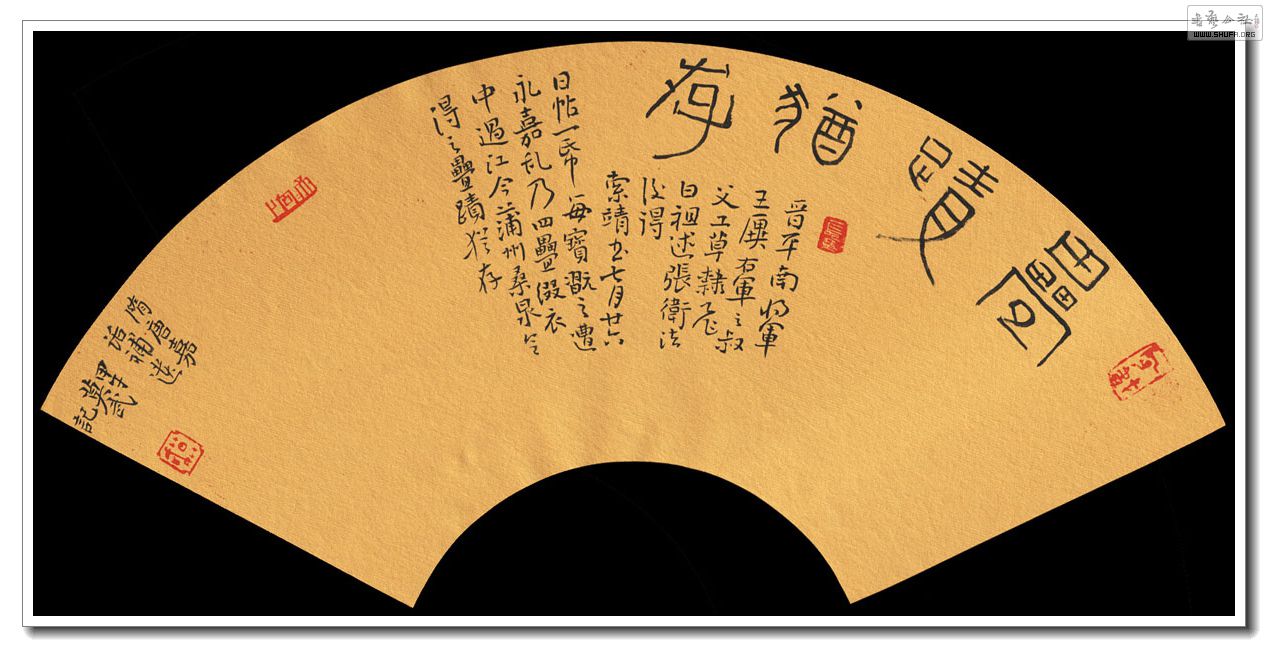 疊蹟猶存
晋平南将軍
王廙右軍之叔
父工草隸飛
白祖述張衛法
後得
索靖书七月廿六
日帖一帋每寶翫之遭
永嘉乱乃四疊缀衣
中過江今蒲州桑泉令
得之疊蹟猶存
隋唐嘉
話補遺
甲午
記
書藝公社
WWW.SHUFA.ORG